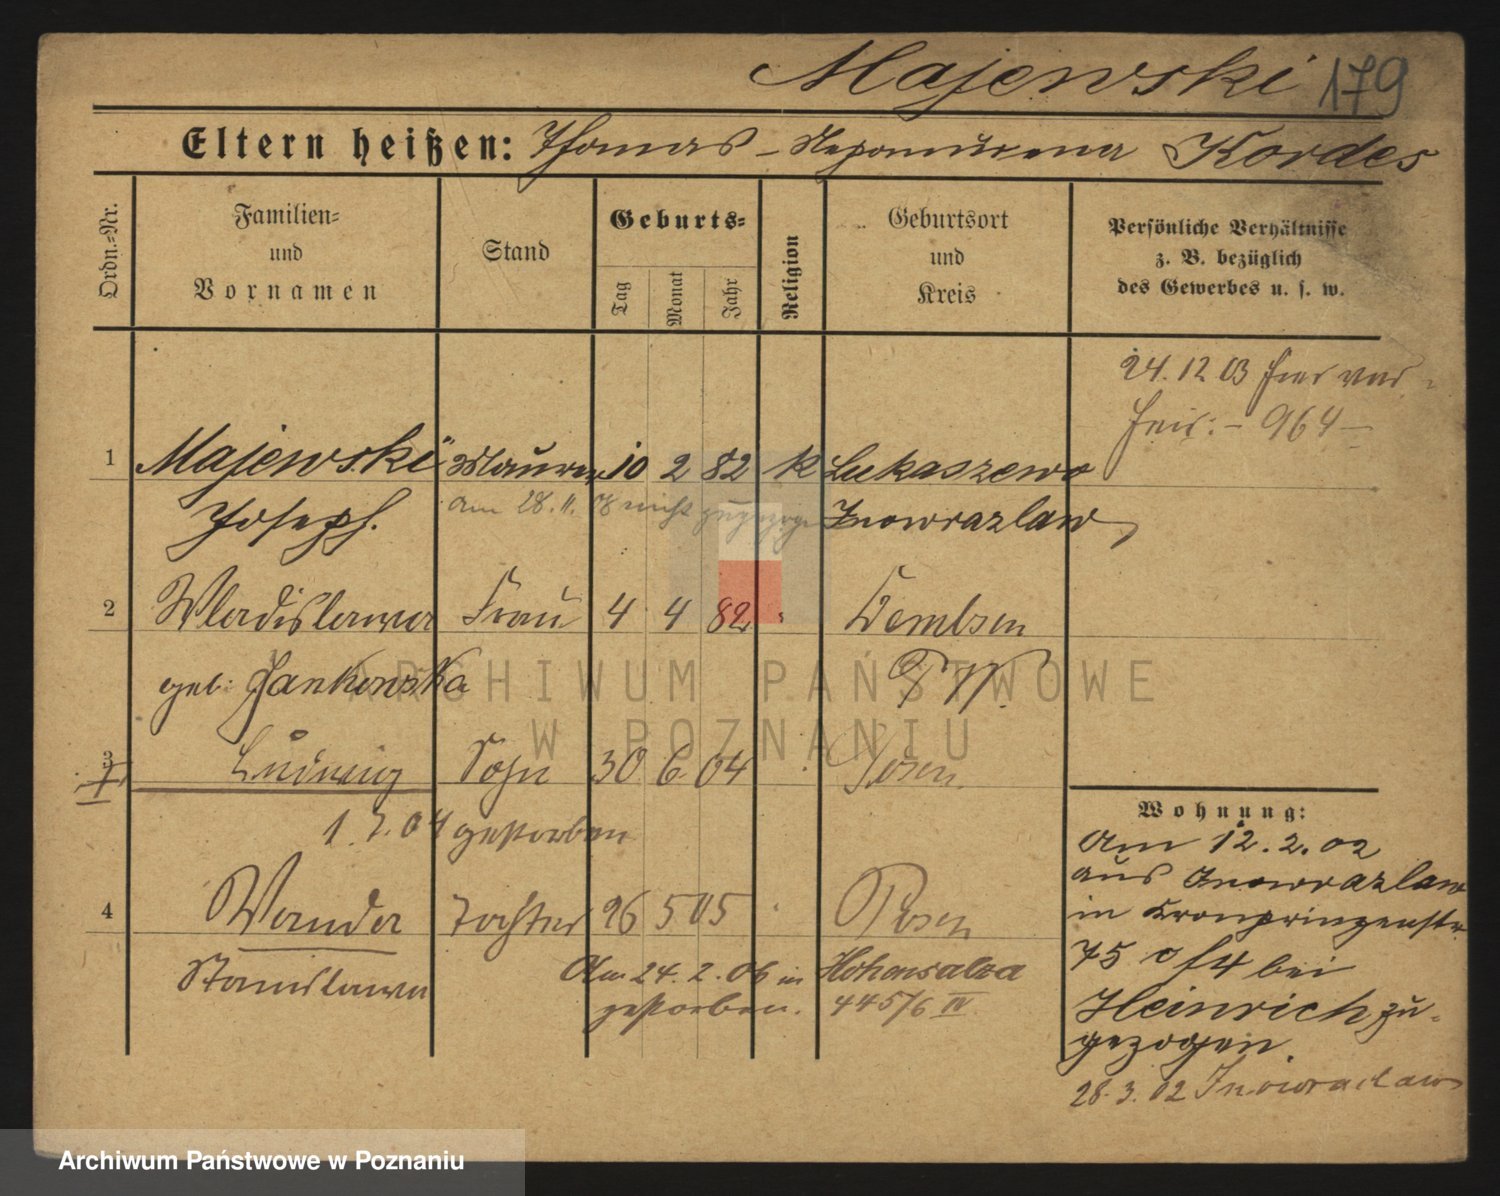 Majewski 179
Eltern heißen: Thomas – Nepomucena Kordes
Ordn.=Nr.
Familien=
und
Vornamen
Stand
Geburts=
Tag
Monat
Jahr
Religion
Geburtsort
und
Kreis
Persönliche Verhältnisse
z. B. bezüglich
des Gewerbes u. s. w.
24.12 03 hier ver=
heir. – 964 –
1 Majewski Maurer 10 2 82 k Lukaszewo
Joseph. am 28.11. nicht zugezogen Inowrazlaw
2 Wladislawa Frau 4 4 82 " Dembsen
geb. Jankowska P W.
3 Ludwig Sohn 30 6 04 Posen
1.7.04 gestorben
4 Wanda Tochter 26 5 05 Posen
Stanislawa Am 24.2.06 in Hohensalza
gestorben. 445/6 IV
Wohnung:
Am 12.2.02
aus Inowrazlaw
in Kronprinzenstr.
75 bei
Heinrich zu=
gezogen.
28.3.02 Inowraclaw
ARCHIWUM PAŃSTWOWE
W POZNANIU
Archiwum Państwowe w Poznaniu